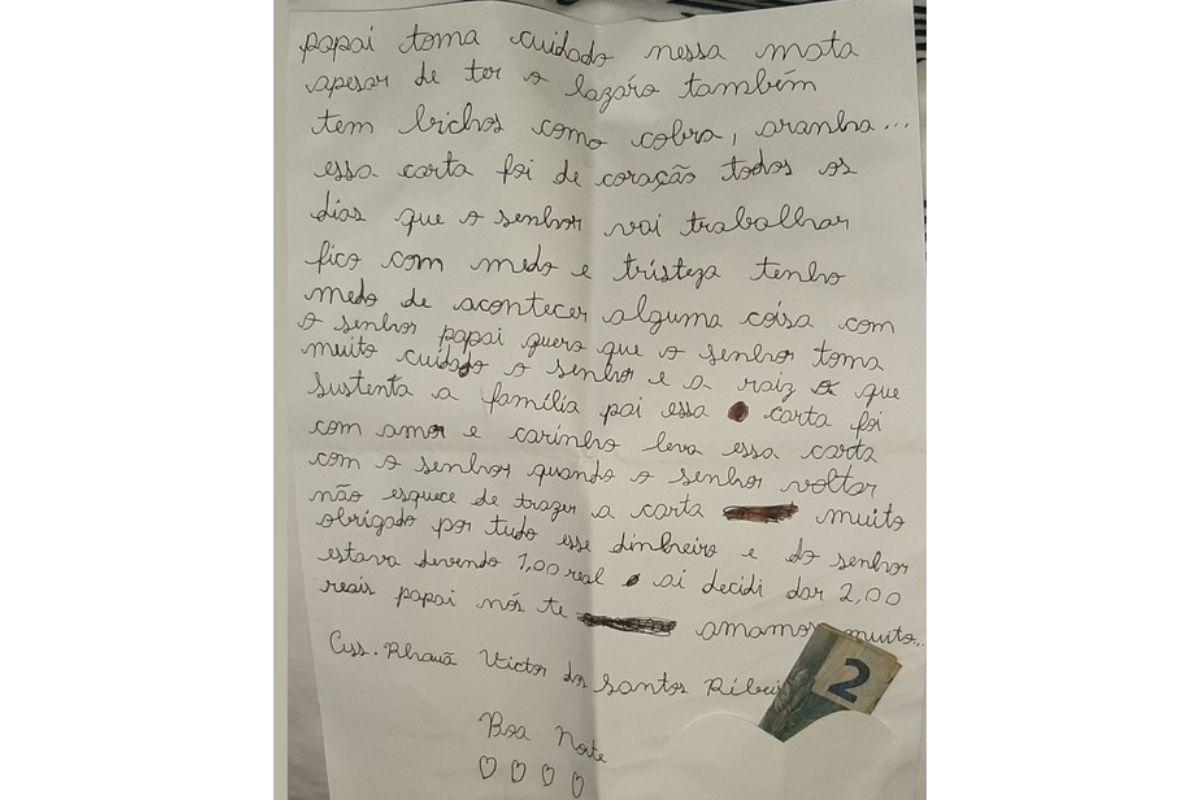 papai toma cuidado nessa mata
apesar de ter o lazáro também
tem bichos como cobra, aranha...
essa carta foi de coração todos os
dias que o senhor vai trabalhar
fico com medo e tristeza tenho
medo de acontecer alguma coisa com
o senhor papai quero que o senhor toma
muito cuidado o senhor e a raiz que
sustenta a família pai essa carta foi
com amor e carinho leva essa carta
com o senhor quando o senhor voltar
não esquece de trazer a carta muito
obrigado por tudo esse dinheiro e do senhor
estava devendo 1,00 real ai decidi dar 2,00
reais papai nós te amamos muito...
Ass. Rhauã Victor dos Santos Ribei
2
Boa Noite